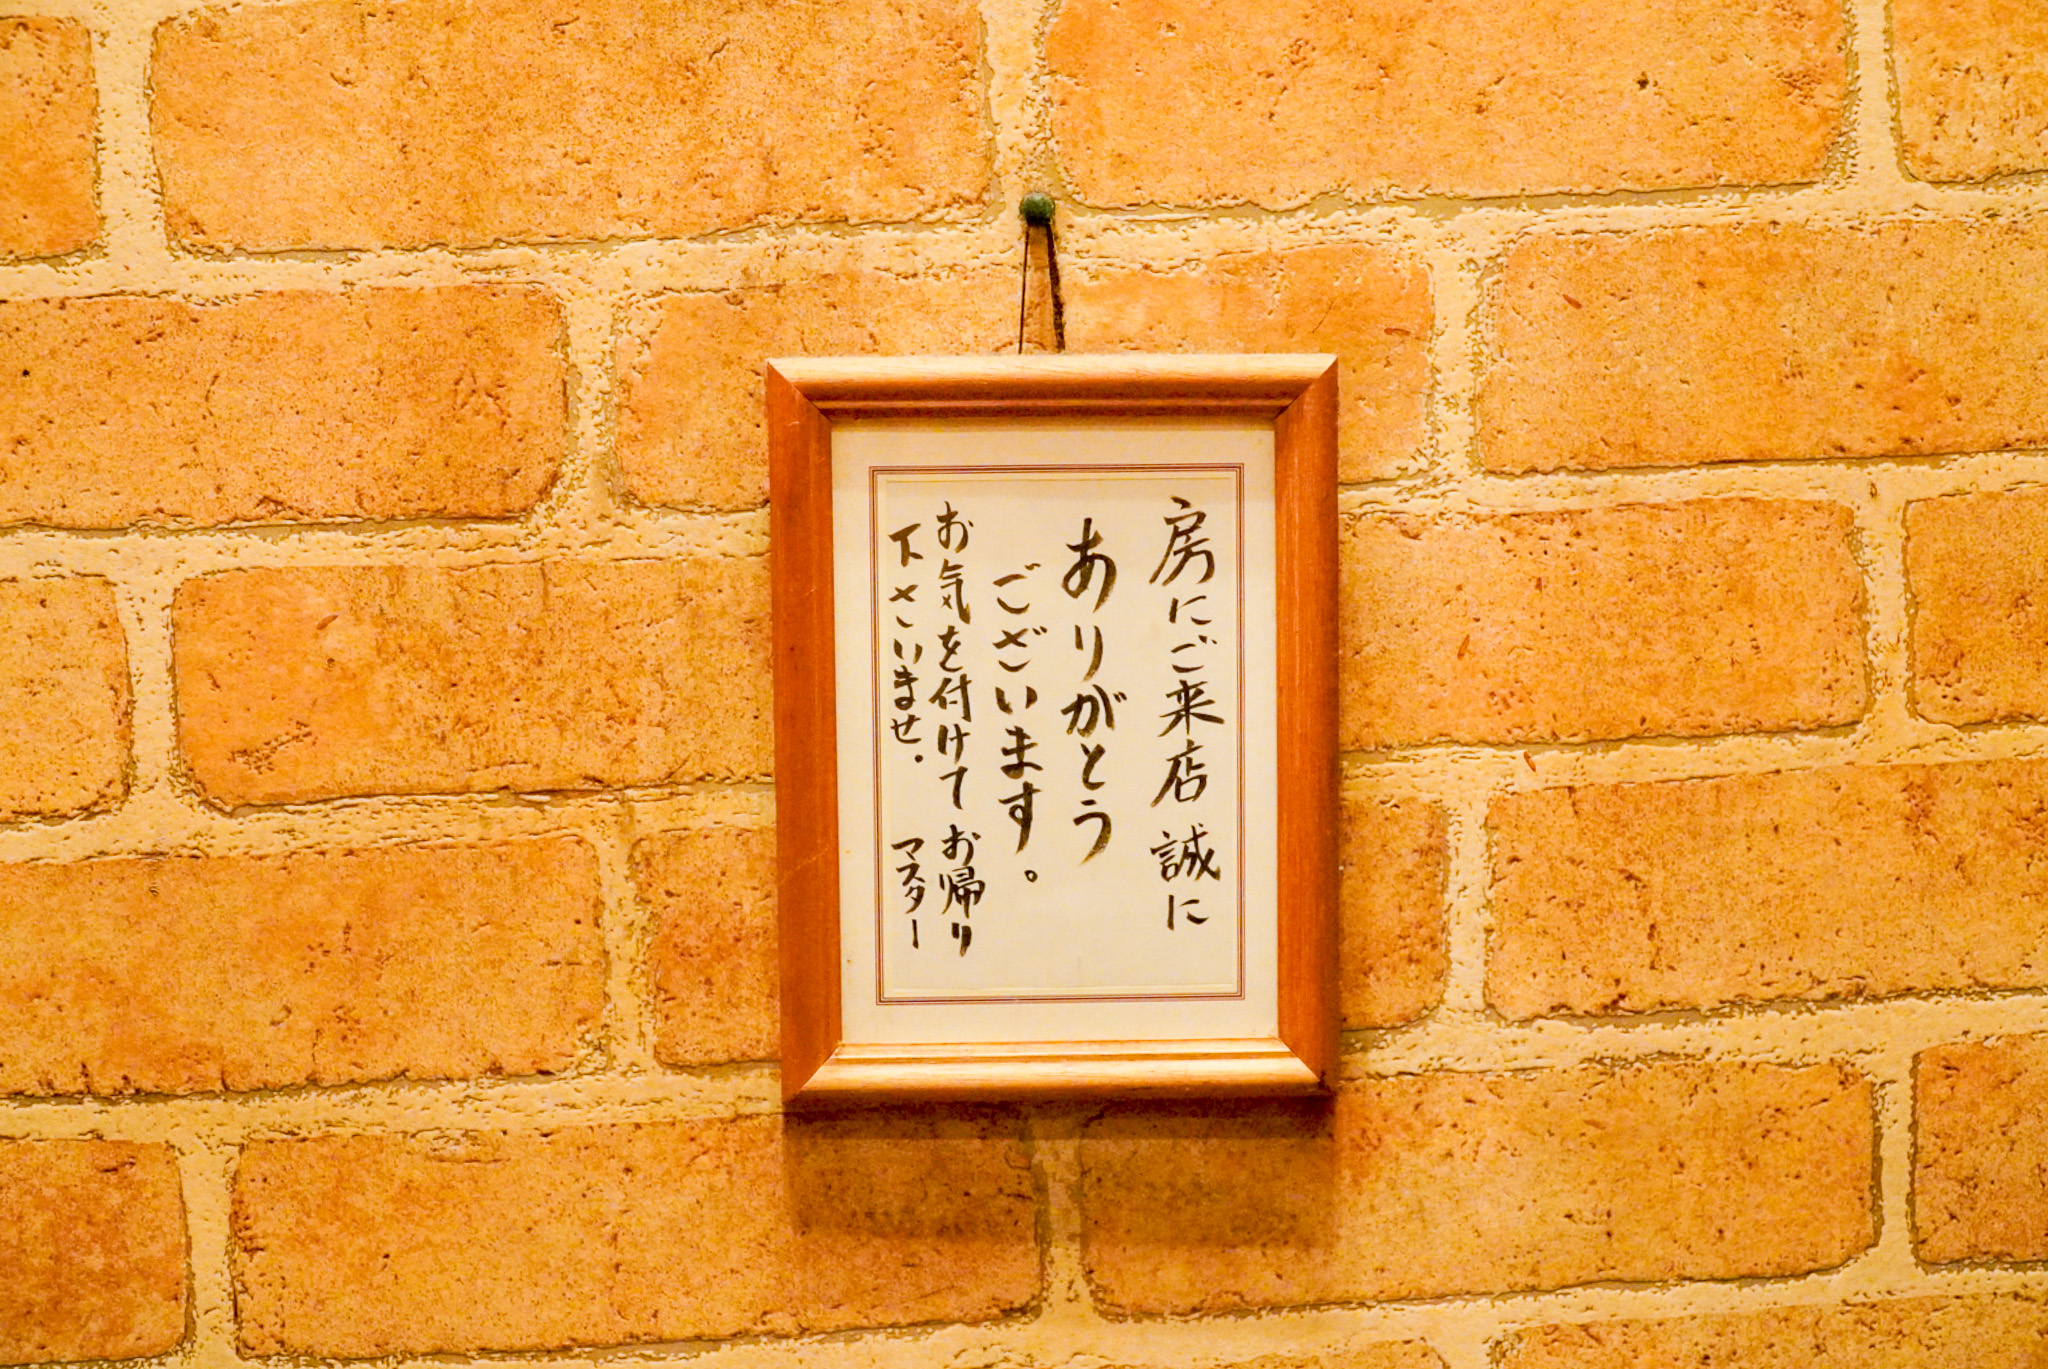 房にご来店誠に
ありがとう
ございます。
お気を付けてお帰り
下さいませ. マスター